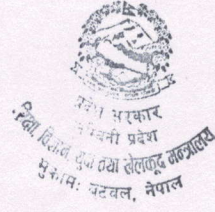 प्रदेश सरकार
लुम्बिनी प्रदेश
शिक्षा, विज्ञान, युवा तथा खेलकूद मन्त्रालय
मुकाम: बुटवल, नेपाल